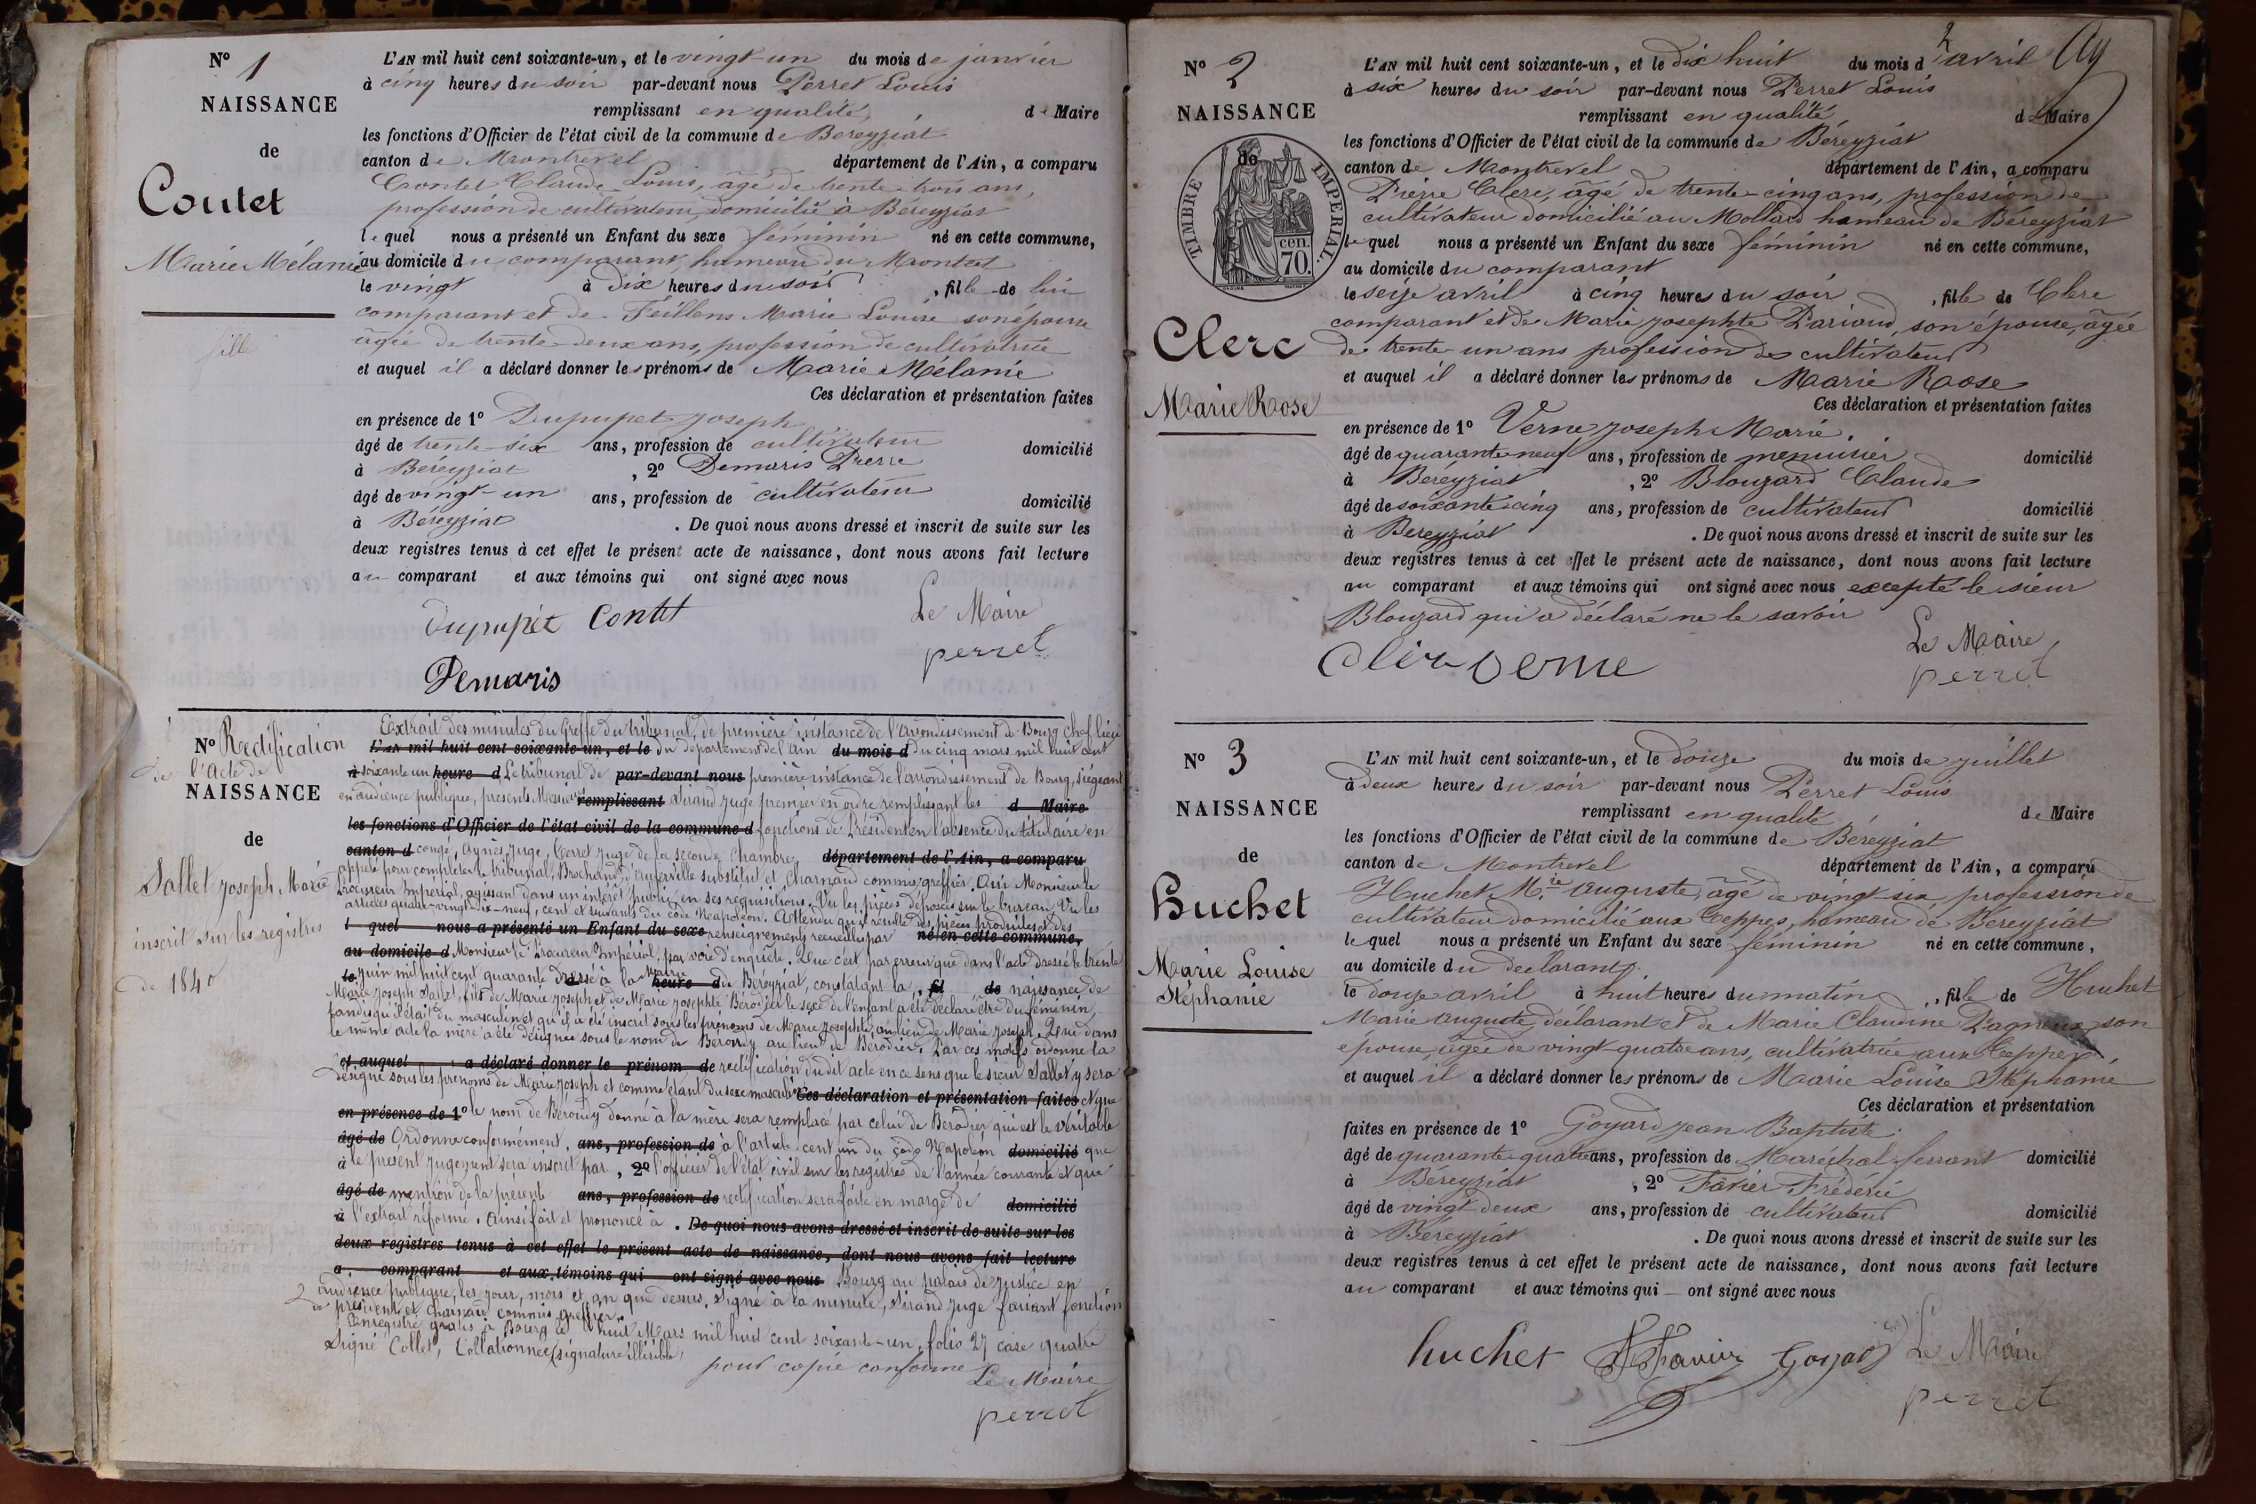 N° 1
NAISSANCE
de
Coutet
Marie Mélanie
fille
L'AN mil huit cent soixante-un, et le vingt-un du mois de janvier
à cinq heures du soir par-devant nous Perret Louis
remplissant en qualité de Maire
les fonctions d'Officier de l'état civil de la commune de Bereyziat
canton de Montrevel département de l'Ain, a comparu
Coutet Claude Louis, âgé de trente trois ans,
profession de cultivateur, domicilié à Béreyziat
lequel nous a présenté un Enfant du sexe féminin né en cette commune,
au domicile du comparant, hameau du Montcel
le vingt à dix heures du soir, fille de lui
comparant et de Feillens Marie Louise son épouse
âgée de trente-deux ans, profession de cultivatrice
et auquel il a déclaré donner les prénoms de Marie Mélanie
Ces déclaration et présentation faites
en présence de 1° Dupupet Joseph
âgé de trente-six ans, profession de cultivateur domicilié
à Béreyziat, 2° Demaris Pierre
âgé de vingt-un ans, profession de cultivateur domicilié
à Béreyziat. De quoi nous avons dressé et inscrit de suite sur les
deux registres tenus à cet effet le présent acte de naissance, dont nous avons fait lecture
au comparant et aux témoins qui ont signé avec nous
Dupupet Contet Le Maire
perret
Demaris
N° Rectification
de l'Acte de
NAISSANCE
de
Sallet Joseph Marie
inscrit sur les registres
de 1840
Extrait des minutes du Greffe du tribunal de première instance de l'arrondissement de Bourg chef lieu
L'AN mil huit cent soixante-un, et le du département de l'Ain du mois d du cinq mars mil huit cent
à soixante un heure d Le tribunal de par-devant nous première instance de l'arrondissement de Bourg, siégeant
en audience publique, présents Messieurs remplissant Sirand juge premier en ordre remplissant les d Maire
les fonctions d'Officier de l'état civil de la commune d fonctions de Président en l'absence du titulaire en
canton d congé, Aynès juge, Cerret juge de la seconde chambre, département de l'Ain, a comparu
appelé pour compléter le tribunal, Brochand d'Auferville substitut et Charnaud commis greffier. Oui Monsieur le
Procureur Impérial, agissant dans un intérêt public en ses réquisitions. Vu les pièces déposées sur le bureau, Vu les
articles quatre-vingt-dix-neuf, cent et suivants du code Napoléon. Attendu qu'il résulte des pièces produites et des
l quel nous a présenté un Enfant du sexe renseignements recueillis par né en cette commune,
au domicile d Monsieur le Procureur Impérial, par voie d'enquête. Que c'est par erreur que dans l'acte dressé le trente
le juin mil huit cent quarante à la Mairie heure d de Béreyziat, constatant la, fil de naissance de
Marie Joseph Sallet, fils de Marie Joseph et de Marie Josephte Bérodier le sexe de l'enfant a été déclaré être du féminin,
tandis qu'il était du masculin et qu'il a été inscrit sous les prénoms de Marie Josephte, au lieu de Marie Joseph. Que dans
le même acte la mère a été désignée sous le nom de Beroudy au lieu de Bérodier. Par ces motifs ordonne la
et auquel a déclaré donner le prénom de rectification du dit acte en ce sens que le sieur Sallet y sera
désigné sous les prénoms de Marie Joseph et comme étant du sexe masculin Ces déclaration et présentation faites et que
en présence de 1° le nom de Béroudy donné à la mère sera remplacé par celui de Bérodier qui est le véritable
âgé de Ordonne conformément, ans, profession de à l'article cent un du code Napoléon domicilié que
à le présent jugement sera inscrit par, 2° l'officier de l'état civil sur les registres de l'année courante et que
âgé de mention de la présente ans, profession de rectification sera faite en marge de domicilié
à l'extrait réformé. Ainsi fait et prononcé à. De quoi nous avons dressé et inscrit de suite sur les
deux registres tenus à cet effet le présent acte de naissance, dont nous avons fait lecture
a comparant et aux témoins qui ont signé avec nous Bourg au palais de justice en
audience publique, les jour, mois et an que dessus. Signé à la minute, Sirand juge faisant fonction
de président et Charnaud commis greffier.
Enregistré gratis à Bourg le huit Mars mil huit cent soixante-un, folio 27 case quatre
Signé Collet, Collationnée (signature illisible)
pour copie conforme Le Maire
perret
2
N° 2
NAISSANCE
de
TIMBRE IMPÉRIAL.
cen.
70.
Clerc
Marie Rose
L'AN mil huit cent soixante-un, et le dix huit du mois d'avril
à six heures du soir par-devant nous Perret Louis
remplissant en qualité de Maire
les fonctions d'Officier de l'état civil de la commune de Béreyziat
canton de Montrevel département de l'Ain, a comparu
Pierre Clerc, âgé de trente-cinq ans, profession de
cultivateur domicilié au Mollard hameau de Béreyziat
lequel nous a présenté un Enfant du sexe féminin né en cette commune,
au domicile du comparant
le seize avril à cinq heures du soir, fille de Clerc
comparant et de Marie Josephte Pariaud, son épouse, âgée
de trente un ans profession de cultivateur
et auquel il a déclaré donner les prénoms de Marie Rose
Ces déclaration et présentation faites
en présence de 1° Verne Joseph Marie.
âgé de quarante-neuf ans, profession de menuisier domicilié
à Béreyziat, 2° Blouzard Claude
âgé de soixante-cinq ans, profession de cultivateur domicilié
à Bereyziat. De quoi nous avons dressé et inscrit de suite sur les
deux registres tenus à cet effet le présent acte de naissance, dont nous avons fait lecture
au comparant et aux témoins qui ont signé avec nous excepté le sieur
Blouzard qui a déclaré ne le savoir
Clerc Verne Le Maire
perret
N° 3
NAISSANCE
de
Huchet
Marie Louise
Stéphanie
L'AN mil huit cent soixante-un, et le douze du mois de juillet
à deux heures du soir par-devant nous Perret Louis
remplissant en qualité de Maire
les fonctions d'Officier de l'état civil de la commune de Béreyziat
canton de Montrevel département de l'Ain, a comparu
Huchet M.ie Auguste, âgé de vingt-six, profession de
cultivateur domicilié aux Ceppes, hameau de Béreyziat
lequel nous a présenté un Enfant du sexe féminin né en cette commune,
au domicile du declarant
le douze avril à huit heures du matin, fille de Huchet
Marie Auguste, déclarant et de Marie Claudine Pagneux son
épouse, âgée de vingt-quatre ans, cultivatrice aux Ceppes,
et auquel il a déclaré donner les prénoms de Marie Louise Stéphanie
Ces déclaration et présentation
faites en présence de 1° Goyard Jean Baptiste.
âgé de quarante quatre ans, profession de Maréchal-ferrant domicilié
à Béreyziat, 2° Favier Frédéric
âgé de vingt deux ans, profession de cultivateur domicilié
à Béreyziat. De quoi nous avons dressé et inscrit de suite sur les
deux registres tenus à cet effet le présent acte de naissance, dont nous avons fait lecture
au comparant et aux témoins qui ont signé avec nous
huchet Favier Goyard Le Maire
perret